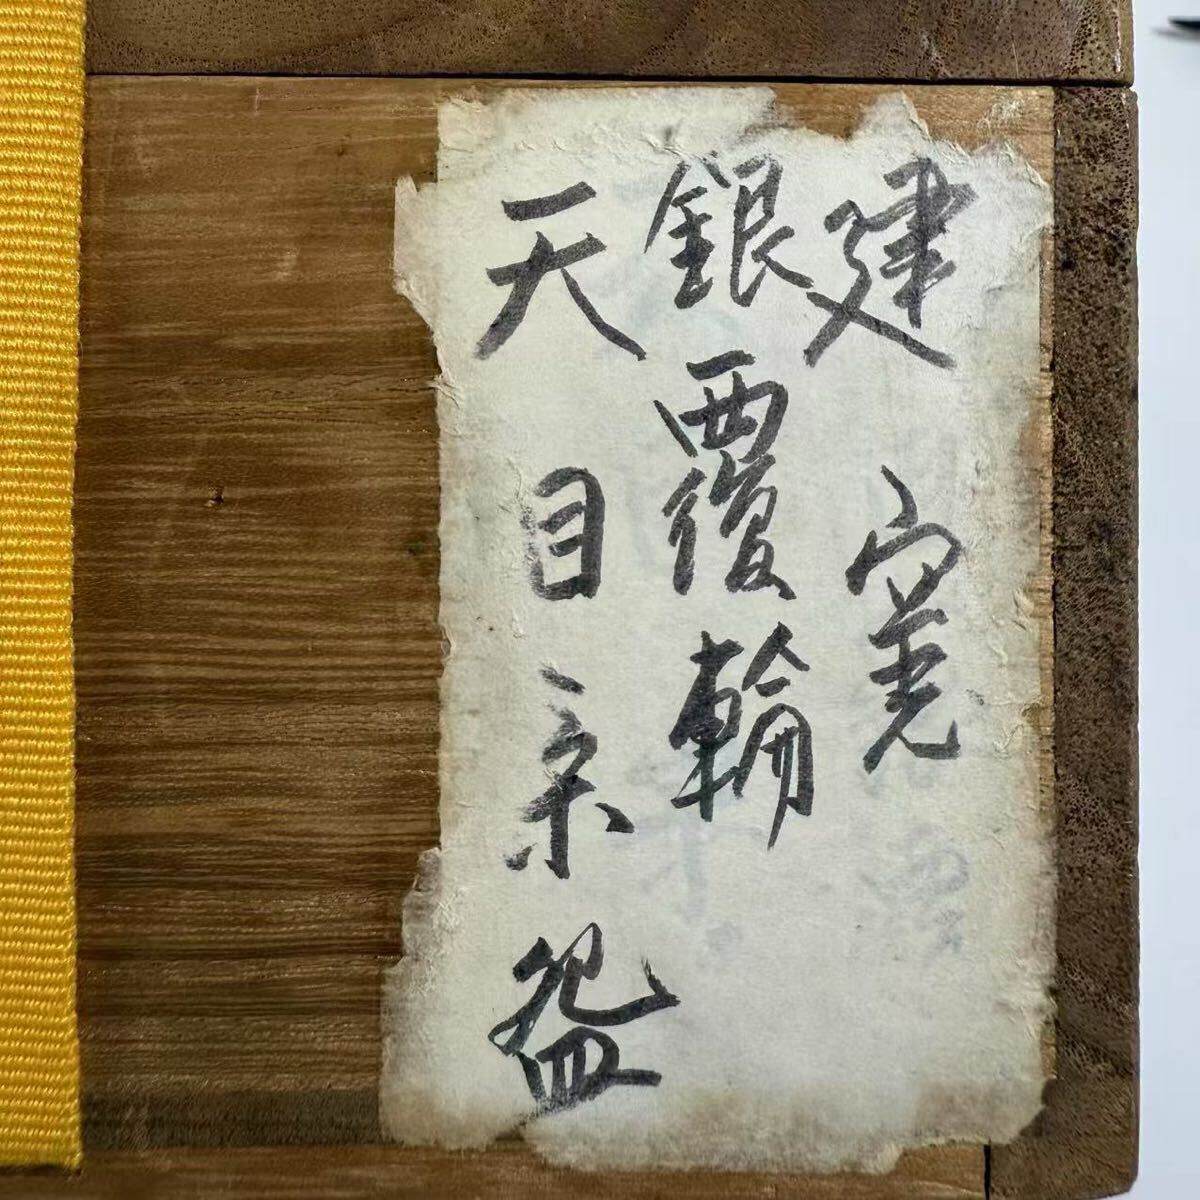 建窯
銀覆輪
天目茶盌